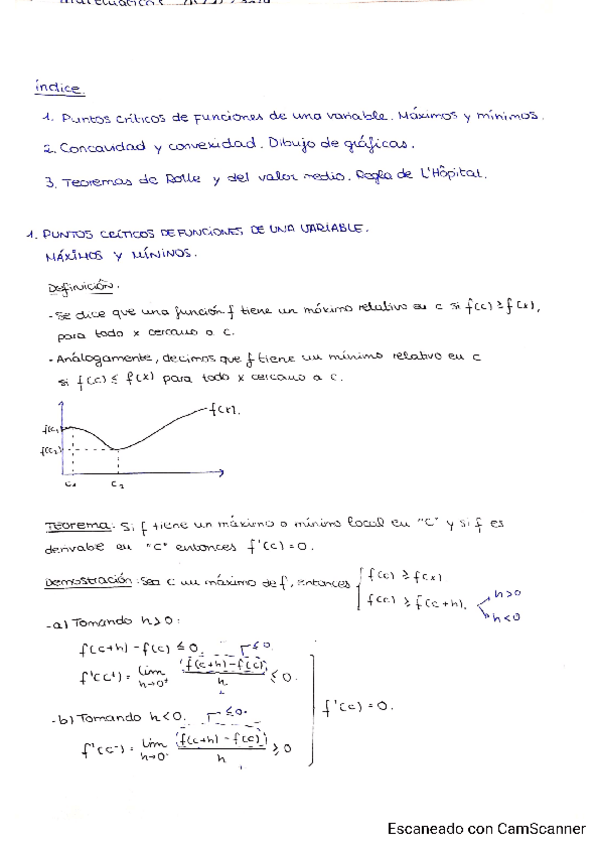 índice.
1. Puntos críticos de funciones de una variable. Máximos y mínimos.
2. Concavidad y convexidad. Dibujo de gráficas.
3. Teoremas de Rolle y del valor medio. Regla de L'Hôpital.
1. PUNTOS CRÍTICOS DE FUNCIONES DE UNA VARIABLE.
MÁXIMOS Y MÍNINOS.
Definición.
- Se dice que una función f tiene un máximo relativo en c si f(c) ≥ f(x),
para todo x cercano a c.
- Análogamente, decimos que f tiene un mínimo relativo en c
si f(c) ≤ f(x) para todo x cercano a c.
f(x).
f(c₁)
f(c₂)
c₁ c₂
Teorema: Si f tiene un máximo o mínimo local en "c" y si f es
derivable en "c" entonces f'(c) = 0.
Demostración: Sea c un máximo de f, entonces { f(c) ≥ f(x)
f(c) ≥ f(c+h). h>0
h<0
- a) Tomando h>0:
f(c+h) - f(c) ≤ 0. ≤0.
f'(c⁺) = lim h→0⁺ (f(c+h) - f(c)) / h ≤ 0.
f'(c) = 0.
- b) Tomando h<0. ≤0.
f'(c⁻) = lim h→0⁻ (f(c+h) - f(c)) / h ≥ 0
Escaneado con CamScanner